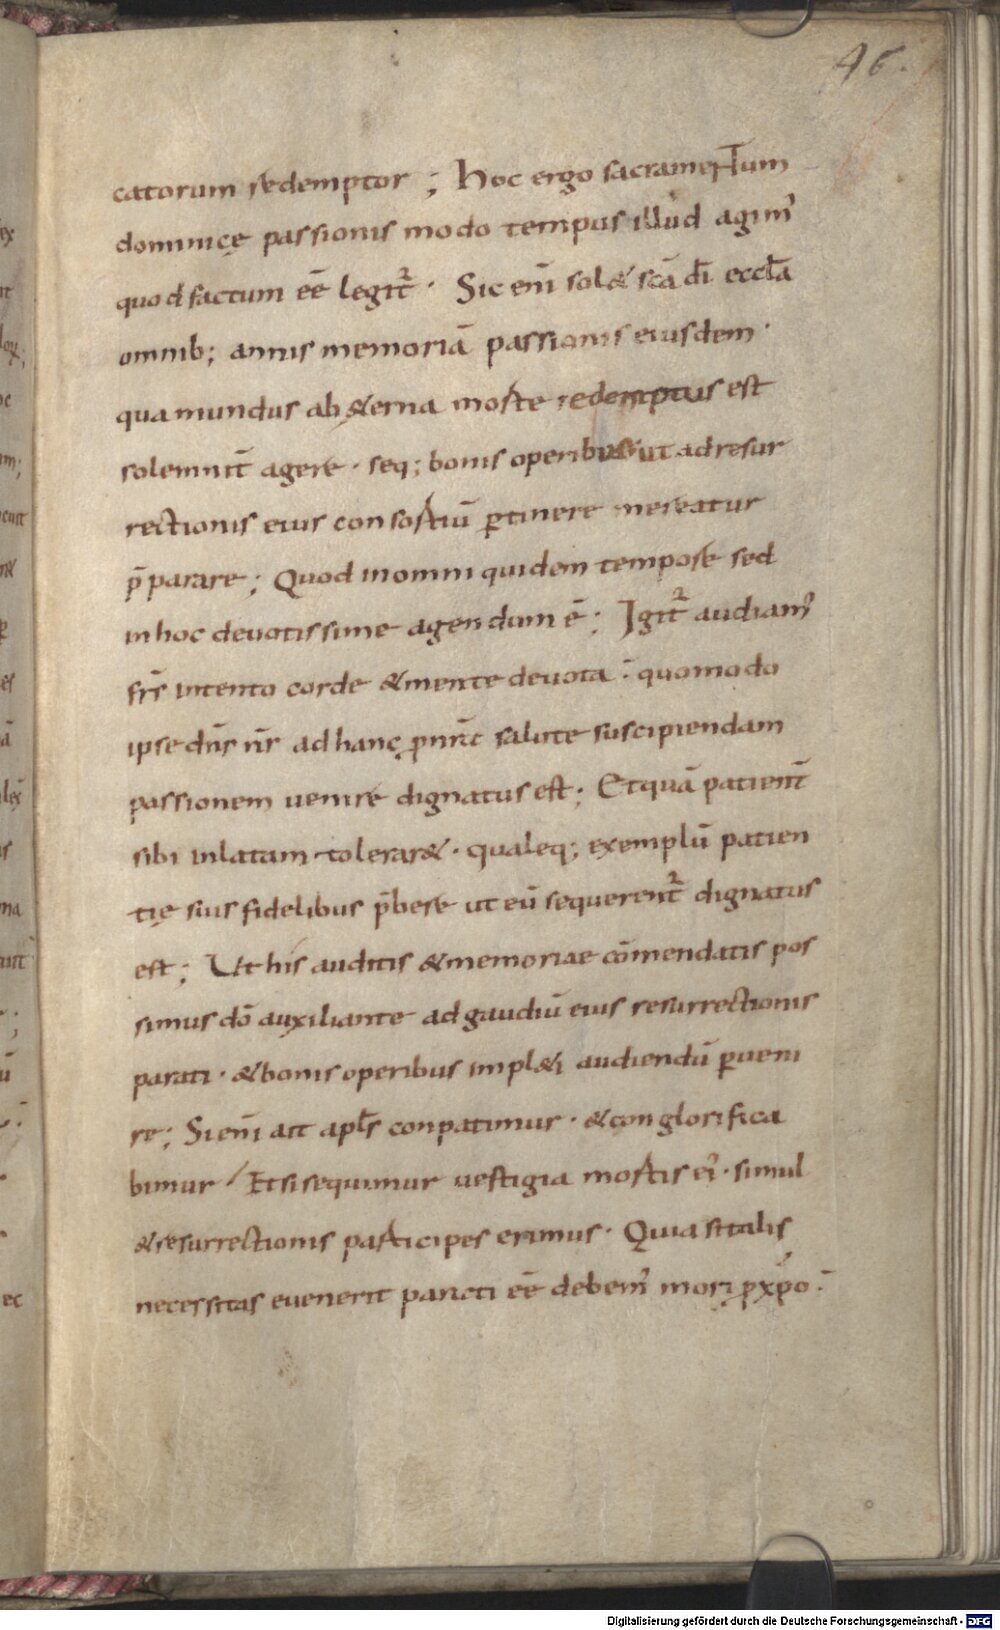 46.
catorum redemptor ; hoc ergo sacramentum
dominicę passionis modo tempus illud agim᾽
quod factum eē legit᷑ · Sic enī sol& scā dī eccl̄a
omnib; annis memoriā passionis eiusdem ·
qua mundus ab &erna morte redemptus est
solemnit̄ agere · seq; bonis operibus ut ad resur
rectionis eius consortiū ꝑtinere mereatur
p̄parare ; Quod in omni quidem tempore sed
in hoc deuotissime agendum ē ; Igit᷑ audiam᾽
fr̄s intento corde & mente deuota : quomodo
ipse dn̄s nr̄ ad hanc ꝓ nr̄a salute suscipiendam
passionem uenire dignatus est ; Et quā patient̄
sibi inlatam tolerar& · qualeq; exemplū patien
tię suis fidelibus p̄bere ut eū sequerent᷑ dignatus
est ; Ut his auditis & memoriae cōmendatis pos
simus dō auxiliante ad gaudiū eius resurrectionis
parati · & bonis operibus impl&i audiendū ꝑueni
re ; Si enī ait apl̄s conpatimur · & conglorifica
bimur / Et si sequimur uestigia mortis ei᾽ · simul
& resurrectionis participes erimus · Quia si talis
necessitas euenerit parati eē debem᾽ mori ꝓ xp̄o :
Digitalisierung gefördert durch die Deutsche Forschungsgemeinschaft - DFG